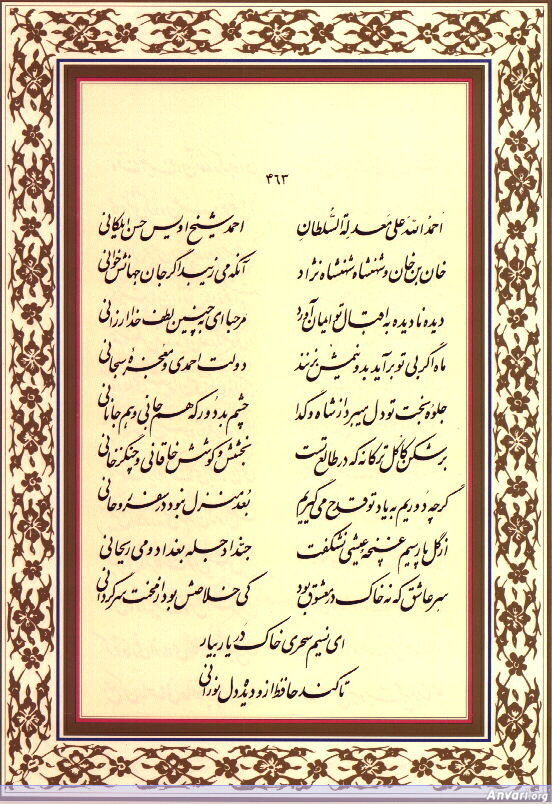 ۴۶۳
احمدُ اللهَ علی معدلة السُّلطانِ احمد شیخ اویس حسن ایلکانی
خان بن خان و شهنشاه شهنشاه نژاد آنکه می زیبد اگر جان جهانش خوانی
دیده نادیده به اقبال تو ایمان آورد مرحبا ای به چنین لطف خدا ارزانی
ماه اگر بی تو برآید بدو نیمش بزنند دولت احمدی و معجزهٔ سبحانی
جلوه بخت تو دل میبرد از شاه و گدا چشم بد دور که هم جانی و هم جانانی
برشکن کاکل ترکانه که در طالع تست بخشش و کوشش خاقانی و چنگزخانی
گرچه دوریم به یاد تو قدح می گیریم بعد منزل نبود در سفر روحانی
از گل پارسیم غنچه عیشی نشکفت حبذا دجله بغداد و می ریحانی
سر عاشق که نه خاک در معشوق بود کی خلاصش بود از محنت سرگردانی
ای نسیم سحری خاک در یار بیار
تا کند حافظ ازو دیده دل نورانی
Anvari.org